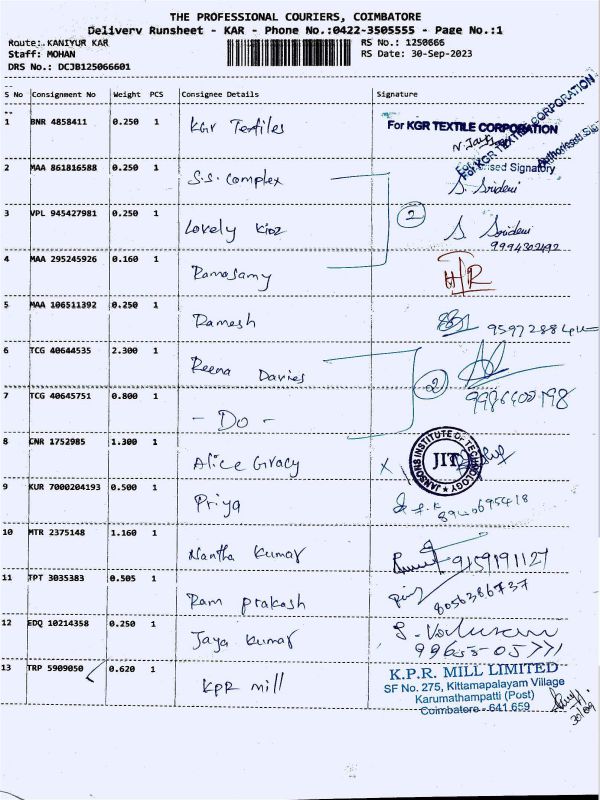 THE PROFESSIONAL COURIERS, COIMBATORE
Delivery Runsheet - KAR - Phone No.:0422-3505555 - Page No.:1
Route: KANIYUR KAR
RS No.: 1250666
Staff: MOHAN
RS Date: 30-Sep-2023
DRS No.: DCJB125066601
S No Consignment No Weight PCS Consignee Details Signature
1 BNR 4858411 0.250 1 KGR Textiles For KGR TEXTILE CORPORATION
For KGR TEXTILE CORPORATION
Authorised Sig
sed Signatory
2 MAA 861816588 0.250 1 S.S. Complex S. Sridevi
3 VPL 945427981 0.250 1 Lovely S Sridevi
9994302492
2
4 MAA 295245926 0.160 1 Ramasamy HR
5 MAA 106511392 0.250 1 Ramesh
6 TCG 40644535 2.300 1 Reena Davies
2
7 TCG 40645751 0.800 1 - Do -
8 CNR 1752985 1.300 1 Alice Gracy X
JANSONS INSTITUTE OF TECHNOLOGY
JIT
9 KUR 7000204193 0.500 1 Priya
10 MTR 2375148 1.160 1 Nantha Kumar 9159191127
11 TPT 3035383 0.505 1 Ram prakash 8056386737
12 EDQ 10214358 0.250 1 Jaya Kumar
13 TRP 5909050 0.620 1 KPR mill K.P.R. MILL LIMITED
SF No. 275, Kittamapalayam Village
Karumathampatti (Post)
Coimbatore - 641 659
30/09